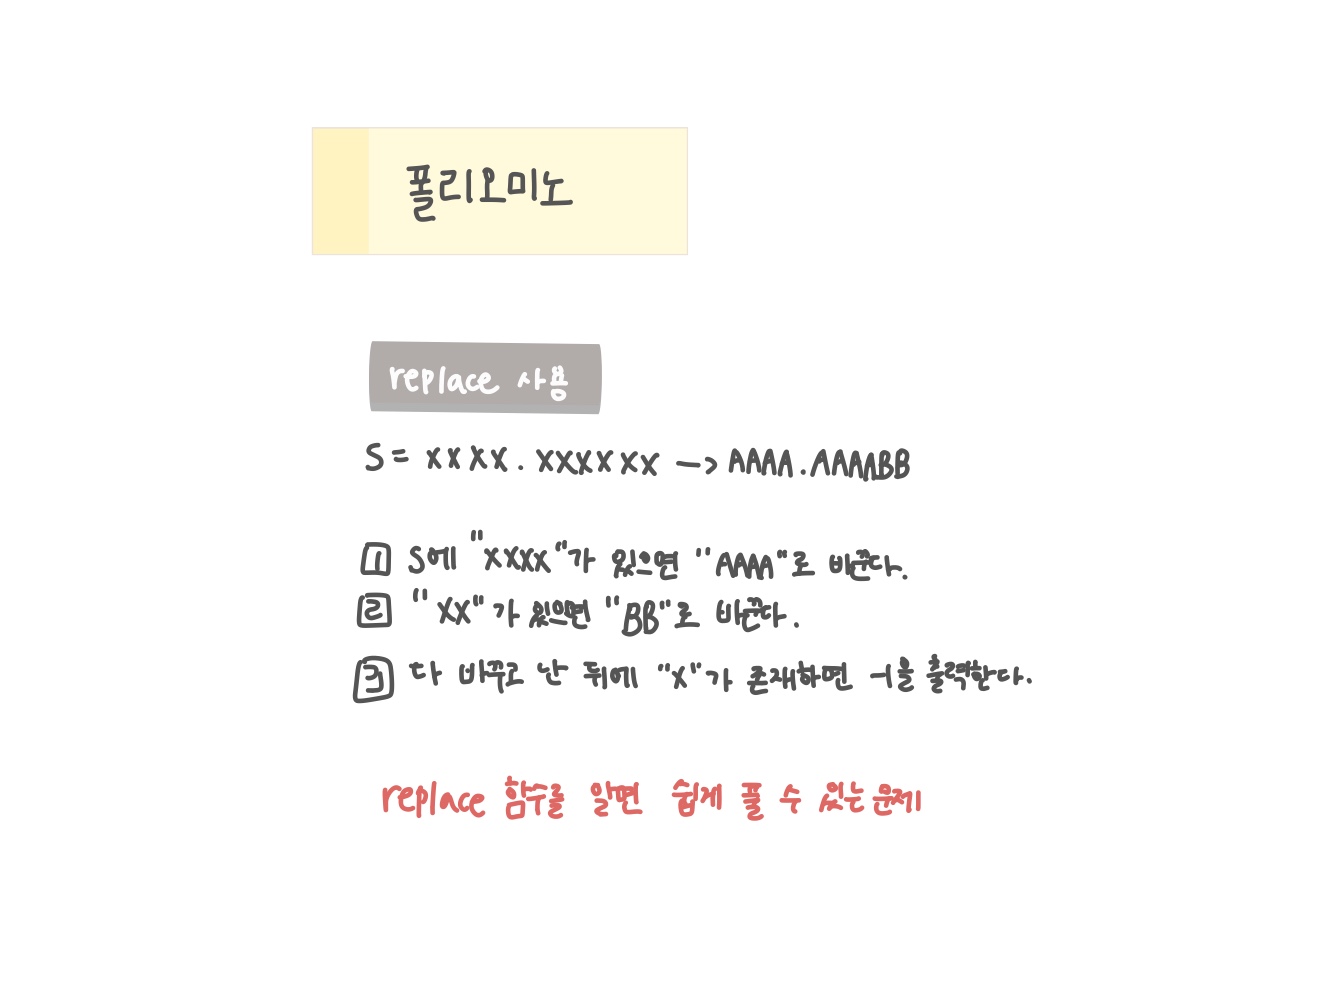 폴리오미노
replace 사용
S = XXXX.XXXXXX -> AAAA.AAAABB
1 S에 "XXXX"가 있으면 "AAAA"로 바꾼다.
2 "XX"가 있으면 "BB"로 바꾼다.
3 다 바꾸고 난 뒤에 "X"가 존재하면 -1을 출력한다.
replace 함수를 알면 쉽게 풀 수 있는 문제